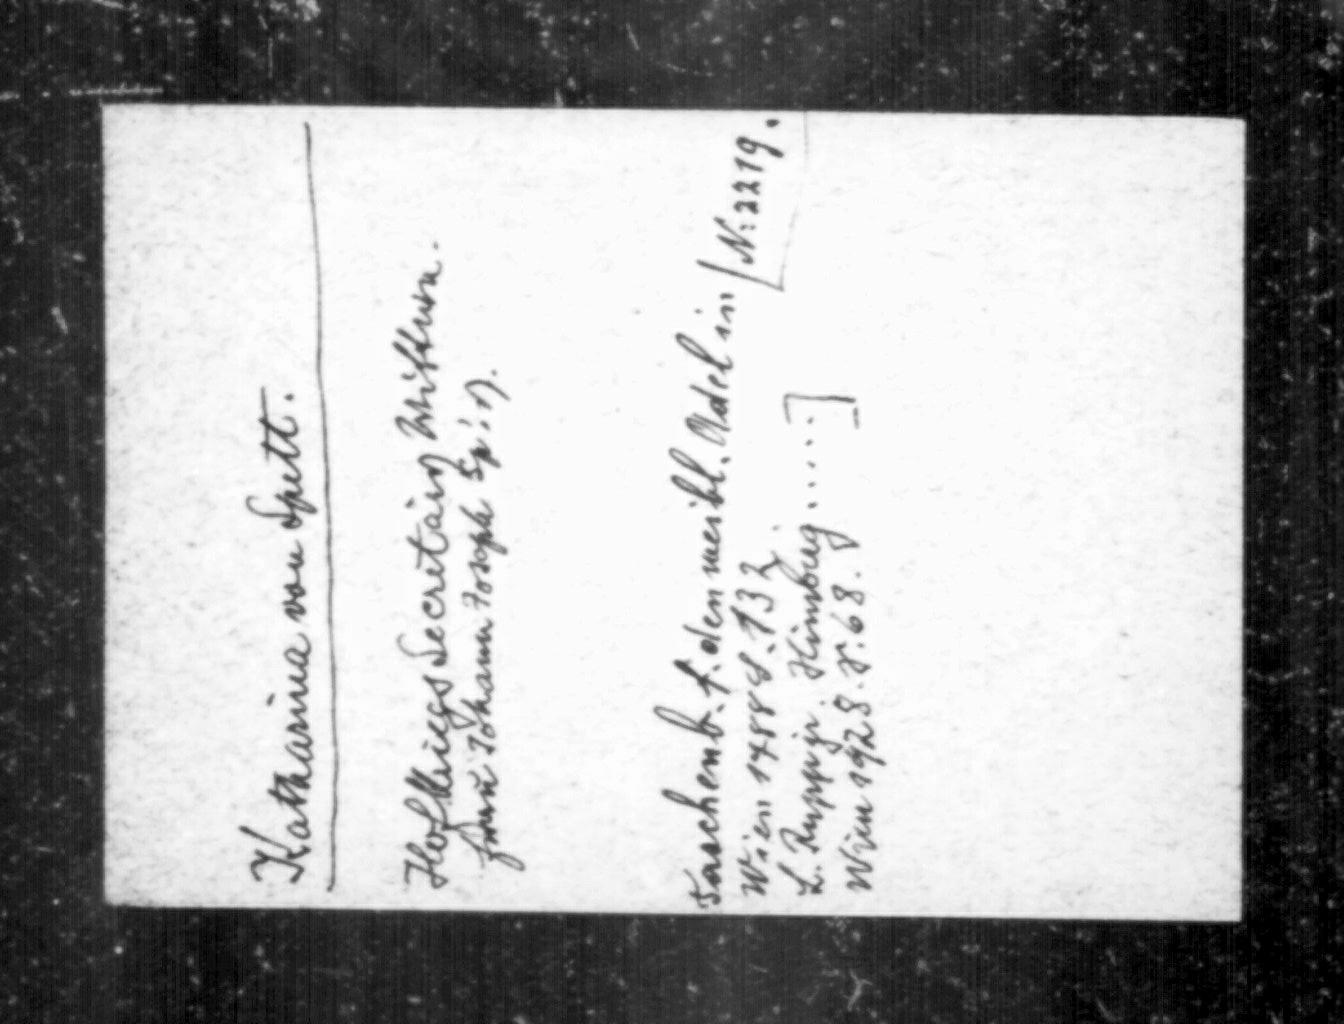 Katharina von Spett.
HofkriegsSecretairs Wittwe.
Johann Joseph Sp:
N: 2219.
Taschenb. f. den weibl. Adel in
Wien 1788 S. 132.
L. Ruppr. Himburg ......]
Wien 1928. S. 68.